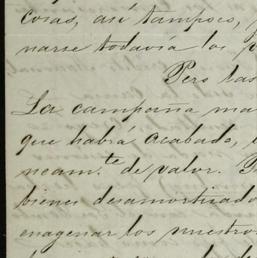 cosas, así tampoco,
narse todavía los
Pero las
La campaña ma
que habrá acabado,
neam.te de valor.
bienes desamortizado
enagenar los nuestros